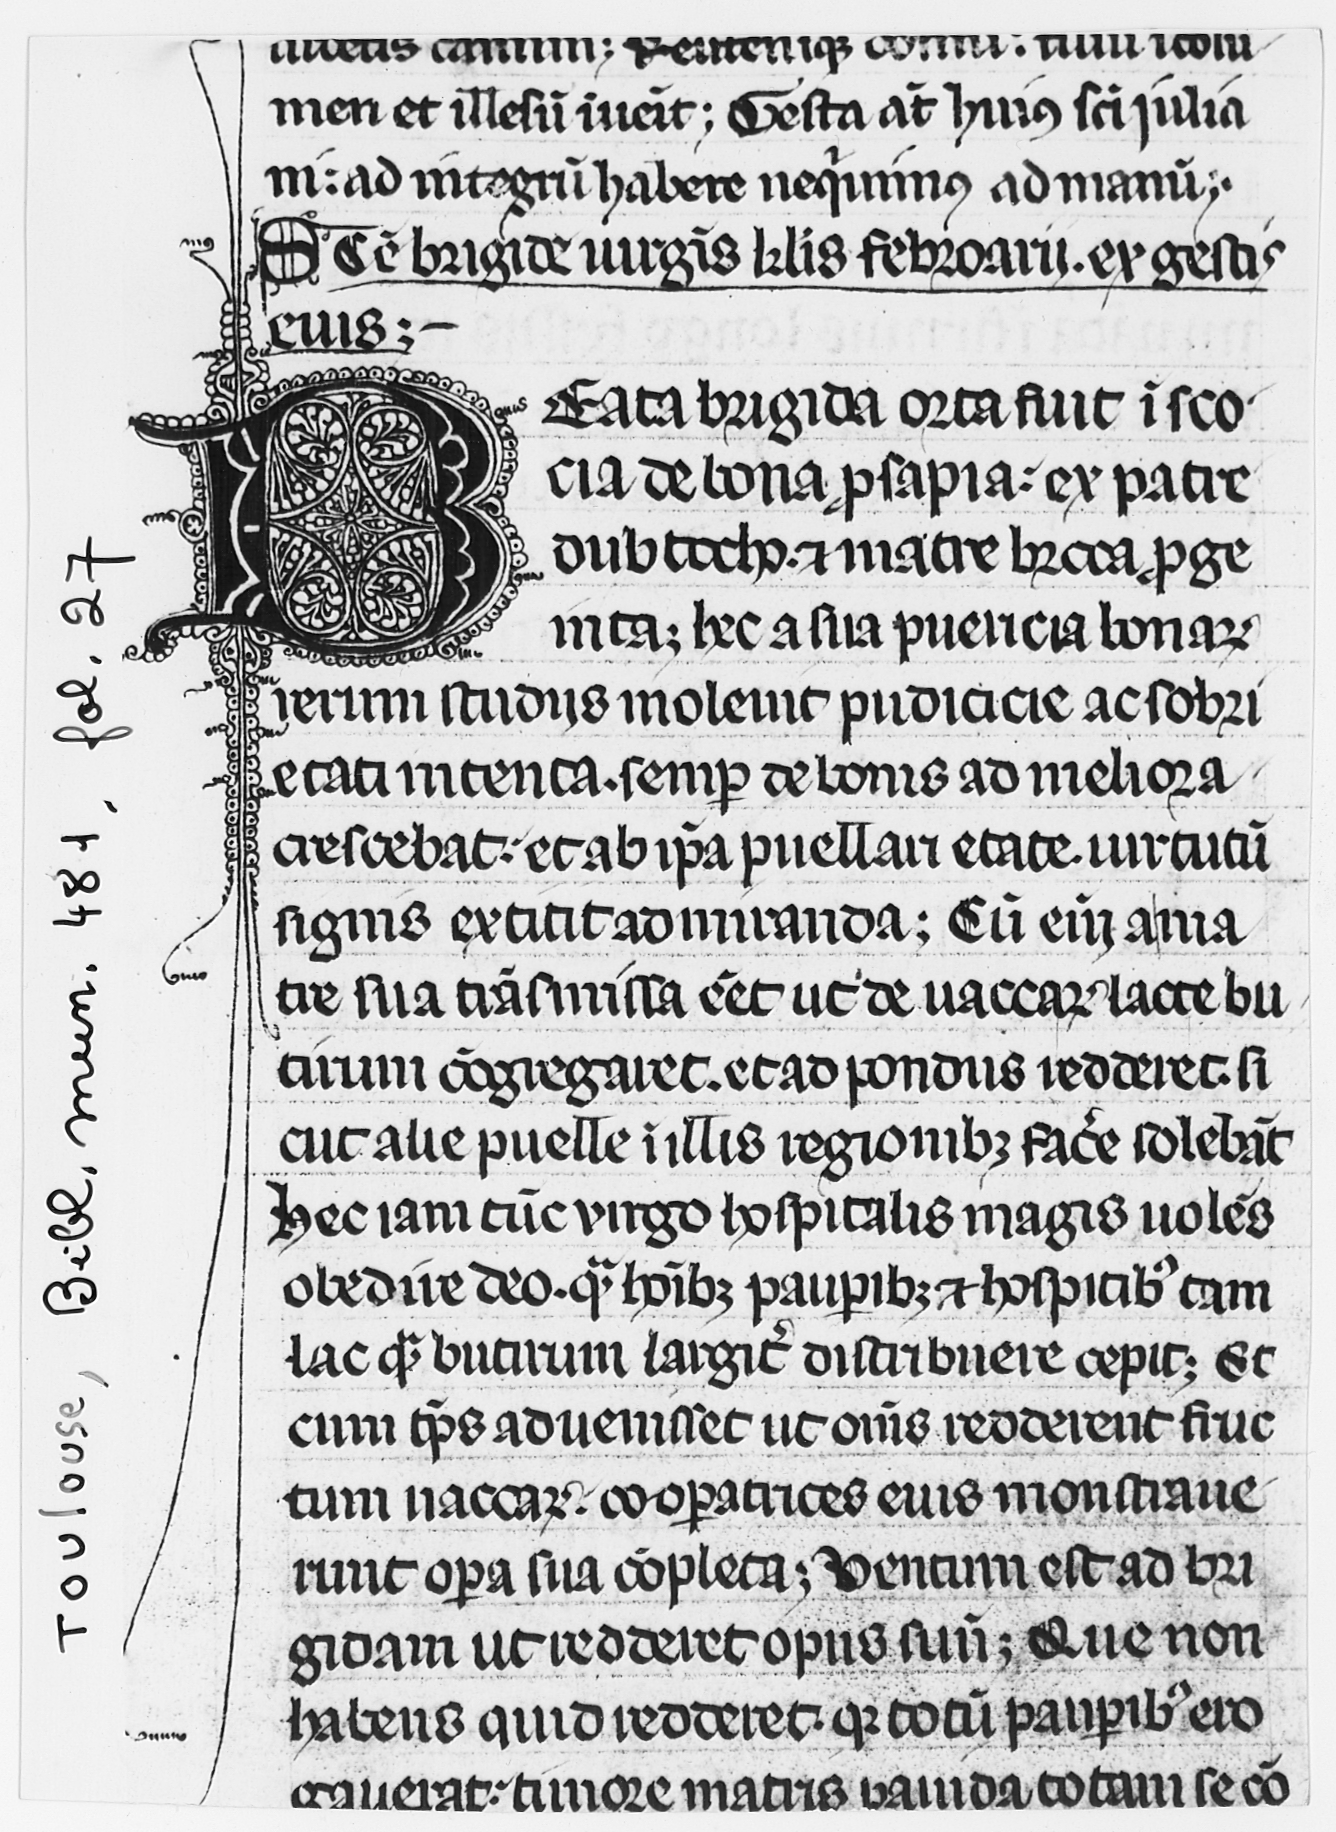 men et illesū īueīt; Gesta aūt huiꝰ scī iulia
ni: ad integrū habere neqͥuimꝰ ad manū;·
SCē brigide uirgīs kl̄is febroarij. ex gestis
euis; –
BEata brigida orta fuit ī sco
cia de bona ꝓsapia: ex patre
dubtocho. ⁊ matre brcca ꝓge
nita; hec a sua puericia bonaꝝ
rerum studijs inoleuit pudicicie ac sobri
etati intenta. semꝑ de bonis ad meliora
crescebat: et ab ip̄a puellari etate. uirtutū
signis extitit admiranda; Cū eīj a ma
tre sua trāsmissa eēt ut de uaccaꝝ lacte bu
tirum cōgregaret. et ad pondus redderet. si
cut alie puelle ī illis regionibꝫ fac̄e solebāt
hec iam tūc virgo hospitalis magis uolēs
obedire deo. qᷓ hoībꝫ pauꝑibꝫ ⁊ hospitibꝰ tam
lac qᷓ butirum largit̄ distribuere cepit; Et
cum tp̄s aduenisset ut om̄s redderent fruc
tum uaccaꝝ. cooꝑatrices euis monstraue
runt oꝑa sua cōpleta; Ventum est ad bri
gidam ut redderet opus suū; Que non
habens quid redderet. qꝛ totū pauꝑibꝰ ero
gauerat: timore matris pauida totam se cō
TOULOUSE, Bibl. mun. 481, fol. 27